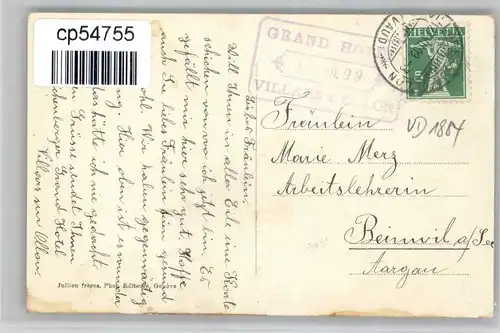 cp54755
GRAND HO
VILLARS s. OLLON
HELVETIA
VAUD
5
VD 1884
Liebes Fräulein,
Will Ihnen in aller Eile eine Karte
schicken von wo ich jetzt bin. Es
gefällt mir hier sehr gut. Hoffe
auch Sie liebes Fräulein sein gesund
ohl. Wir haben gegenwärtig
ng. Hier oben ist es wunder
das hätte ich nie gedacht.
Grüsse sendet Ihnen
Grand Hotel
Villars sur Ollon.
Fräulein
Marie Merz
Arbeitslehrerin
Beinwil a/See
Aargau
Jullien frères, Phot. Editeurs, Genève